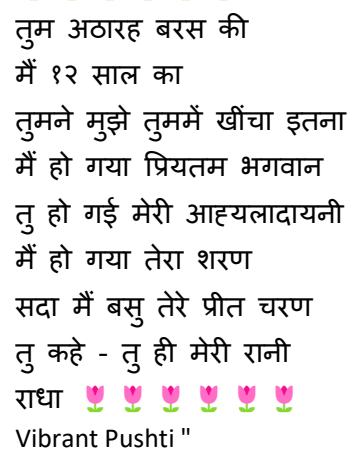 तुम अठारह बरस की
मैं १२ साल का
तुमने मुझे तुममें खींचा इतना
मैं हो गया प्रियतम भगवान
तु हो गई मेरी आह्यलादायनी
मैं हो गया तेरा शरण
सदा मैं बसु तेरे प्रीत चरण
तु कहे - तु ही मेरी रानी
राधा 🌷 🌷 🌷 🌷 🌷 🌷
Vibrant Pushti "